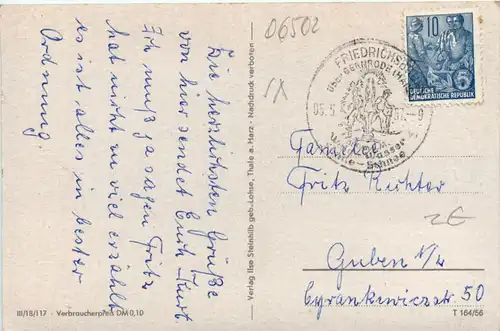 06502
Die herzlichsten Grüße
von hier sendet Euch Kurt.
Ich muß ja sagen Fritz
hat nicht zu viel erzählt
es ist alles in bester
Ordnung.
III/18/117 - Verbraucherpreis DM 0,10
Verlag Ilse Steinbiß geb. Lohse, Thale a. Harz · Nachdruck verboten
10
DEUTSCHE
DEMOKRATISCHE REPUBLIK
FRIEDRICHSB
ÜBER GERNRODE (HA
Familie
Fritz Richter
Guben N/L
Cyrankiewiczstr 50
2€
T 164/56